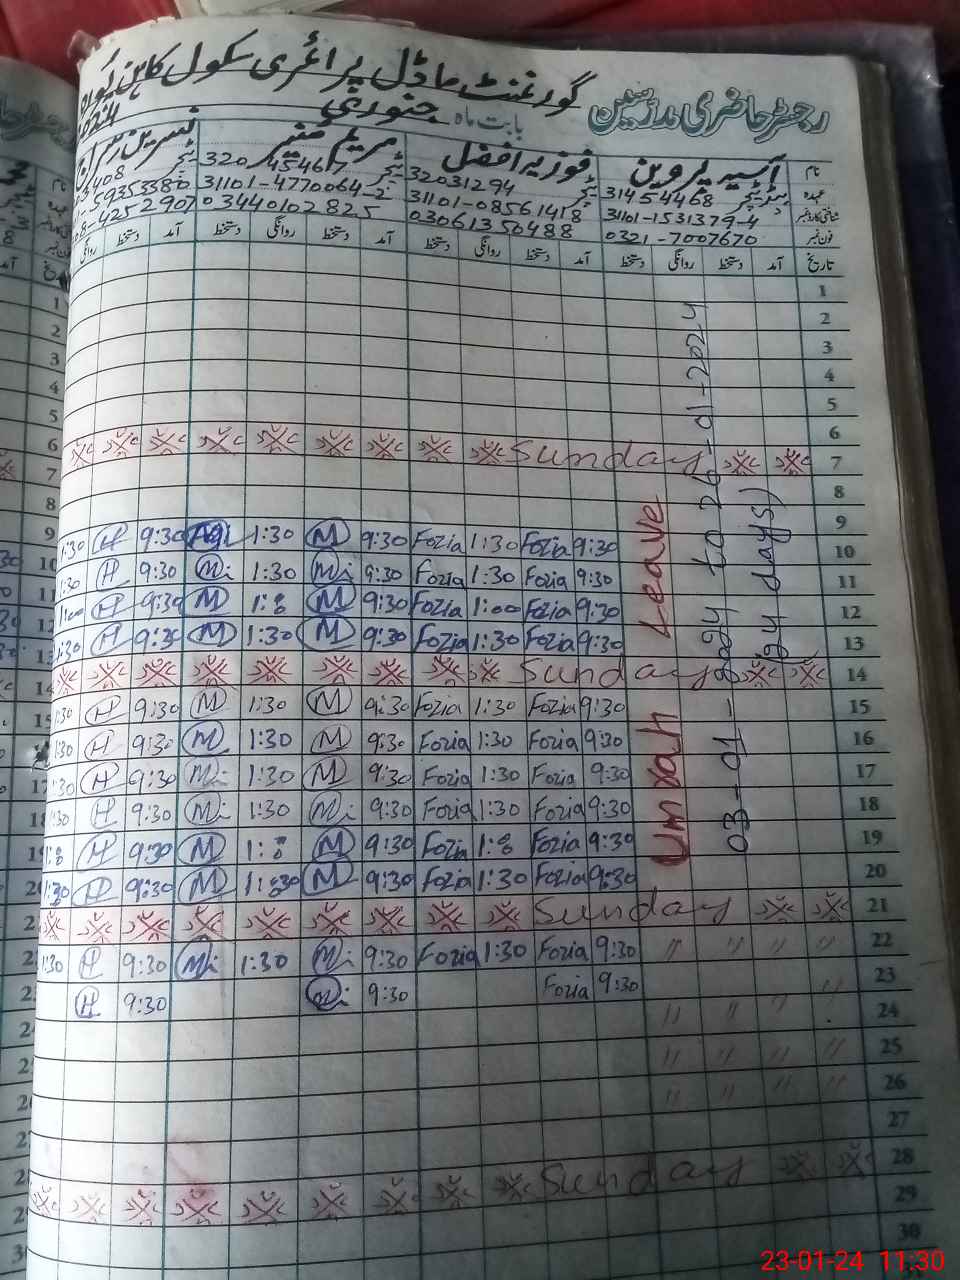 گورنمنٹ ماڈل پرائمری سکول کاہن پورہ
رجسٹر حاضری مدرسین
بابت ماہ جنوری
نام آسیہ پروین فوزیہ افضل مریم منیر نسرین
عہدہ ہیڈ ٹیچر 31454468 ٹیچر 32031294 ٹیچر 320 454617 ٹیچر
شناختی کارڈ نمبر 31101-1531379-4 31101-08561418 31101-4770064-2
فون نمبر 0321-7007670 03061350488 03440102825
تاریخ آمد دستخط روانگی دستخط آمد دستخط روانگی دستخط آمد دستخط روانگی دستخط آمد دستخط روانگی
1
2
3
4
5
6
7 Sunday
8
9 9:30 Fozia 1:30 Fozia 9:30 M 1:30 9:30 H 1:30
10 9:30 Fozia 1:30 Fozia 9:30 M 1:30 M 9:30 H 1:30
11 9:30 Fozia 1:00 Fozia 9:30 M 1:00 M 9:30 H 1:00
12 9:30 Fozia 1:30 Fozia 9:30 M 1:30 M 9:30 H 1:30
13
14 Sunday
15 9:30 Fozia 1:30 Fozia 9:30 M 1:30 M 9:30 H 1:30
16 9:30 Fozia 1:30 Fozia 9:30 M 1:30 M 9:30 H 1:30
17 9:30 Fozia 1:30 Fozia 9:30 M 1:30 M 9:30 H 1:30
18 9:30 Fozia 1:30 Fozia 9:30 M 1:30 M 9:30 H 1:30
19 9:30 Fozia 1:00 Fozia 9:30 M 1:00 M 9:30 H 1:00
20 9:30 Fozia 1:30 Fozia 9:30 M 1:30 M 9:30 H 1:30
21 Sunday
22 〃 〃 〃 〃 9:30 Fozia 1:30 Fozia 9:30 M 1:30 M 9:30 H 1:30
23 〃 9:30 Fozia 9:30 M 9:30 H
24 〃 〃 〃
25 〃 〃 〃 〃
26 〃 〃 〃 〃
27
28 Sunday
29
30
Umrah Leave
03-01-2024 to 26-01-2024
(24 days)
23-01-24 11:30